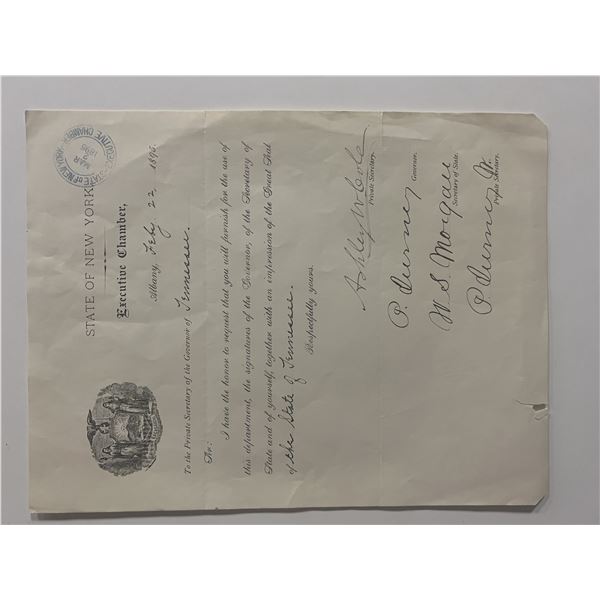 STATE OF NEW YORK
Executive Chamber,
Albany, Feby. 22, 1895.
STATE OF NEW YORK
EXECUTIVE CHAMBER
MAR
1895
To the Private Secretary of the Governor of Tennessee.
Sir:
I have the honor to request that you will furnish for the use of
this department, the signatures of the Governor, of the Secretary of
State and of yourself, together with an impression of the Great Seal
of the State of Tennessee.
Respectfully yours,
Ashley W. Cole,
Private Secretary.
P. Turney
Governor.
W. S. Morgan
Secretary of State.
P. Turney Jr.
Private Secretary.